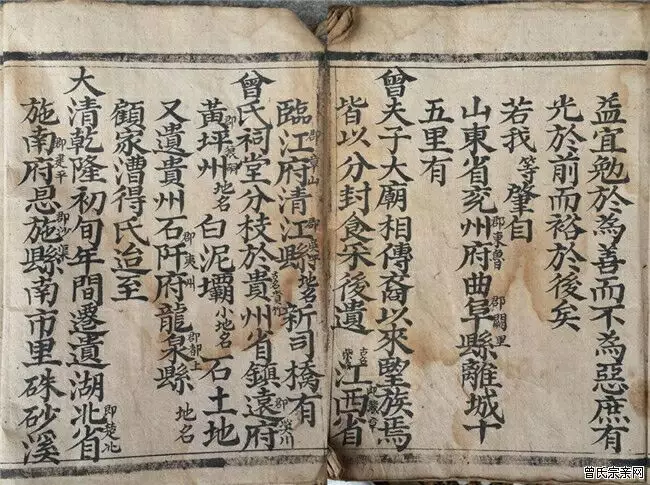 益宜勉於為善而不為惡庶有
光於前而裕於後矣
若我等肇自
山東省兖州府郡東魯曲阜縣郡闕里離城十
五里有
曾夫子大廟相傳裔以來塋族焉
皆以分封食采後遺江西省
臨江府清江縣地名新司橋有
曾氏祠堂分枝於貴州省鎮遠府
黃坪州地名白泥壩小地名石土地
又遺貴州石阡府龍泉縣地名
顧家漕得氏迨至
大清乾隆初旬年間遷遺湖北省即楚北
施南府即建平恩施縣即沙渠南市里硃砂溪
曾氏宗亲网